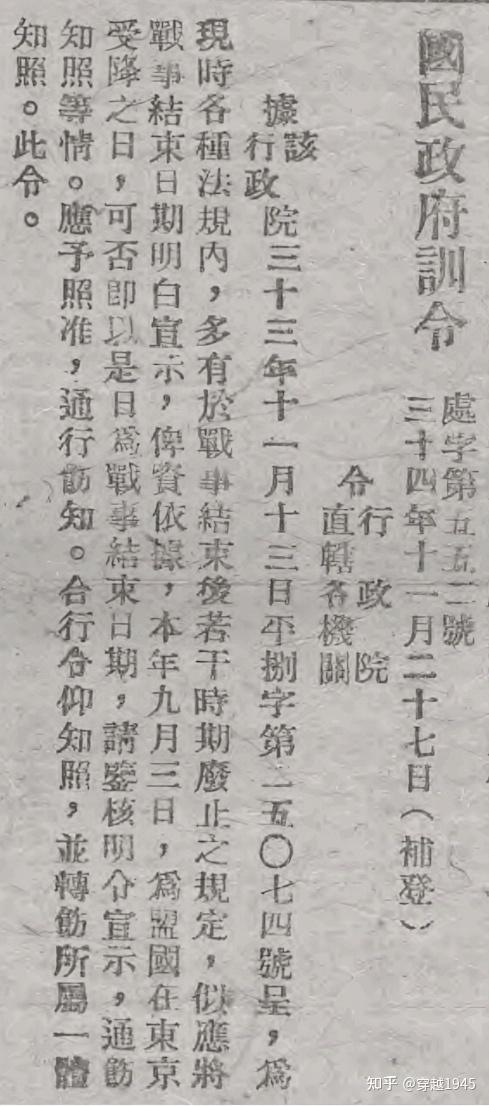 國民政府訓令
處字第五五二號
三十四年十一月二十七日（補登）
令
行政院
直轄各機關
據該行政院三十三年十一月十三日平捌字第二五〇七四號呈，爲
現時各種法規內，多有於戰事結束後若干時期廢止之規定，似應將
戰事結束日期明白宣示，俾資依據，本年九月三日，爲盟國在東京
受降之日，可否即以是日爲戰事結束日期，請鑒核明令宣示，通飭
知照等情。應予照准，通行飭知。合行令仰知照，並轉飭所屬一體
知照。此令。
知乎 @穿越1945